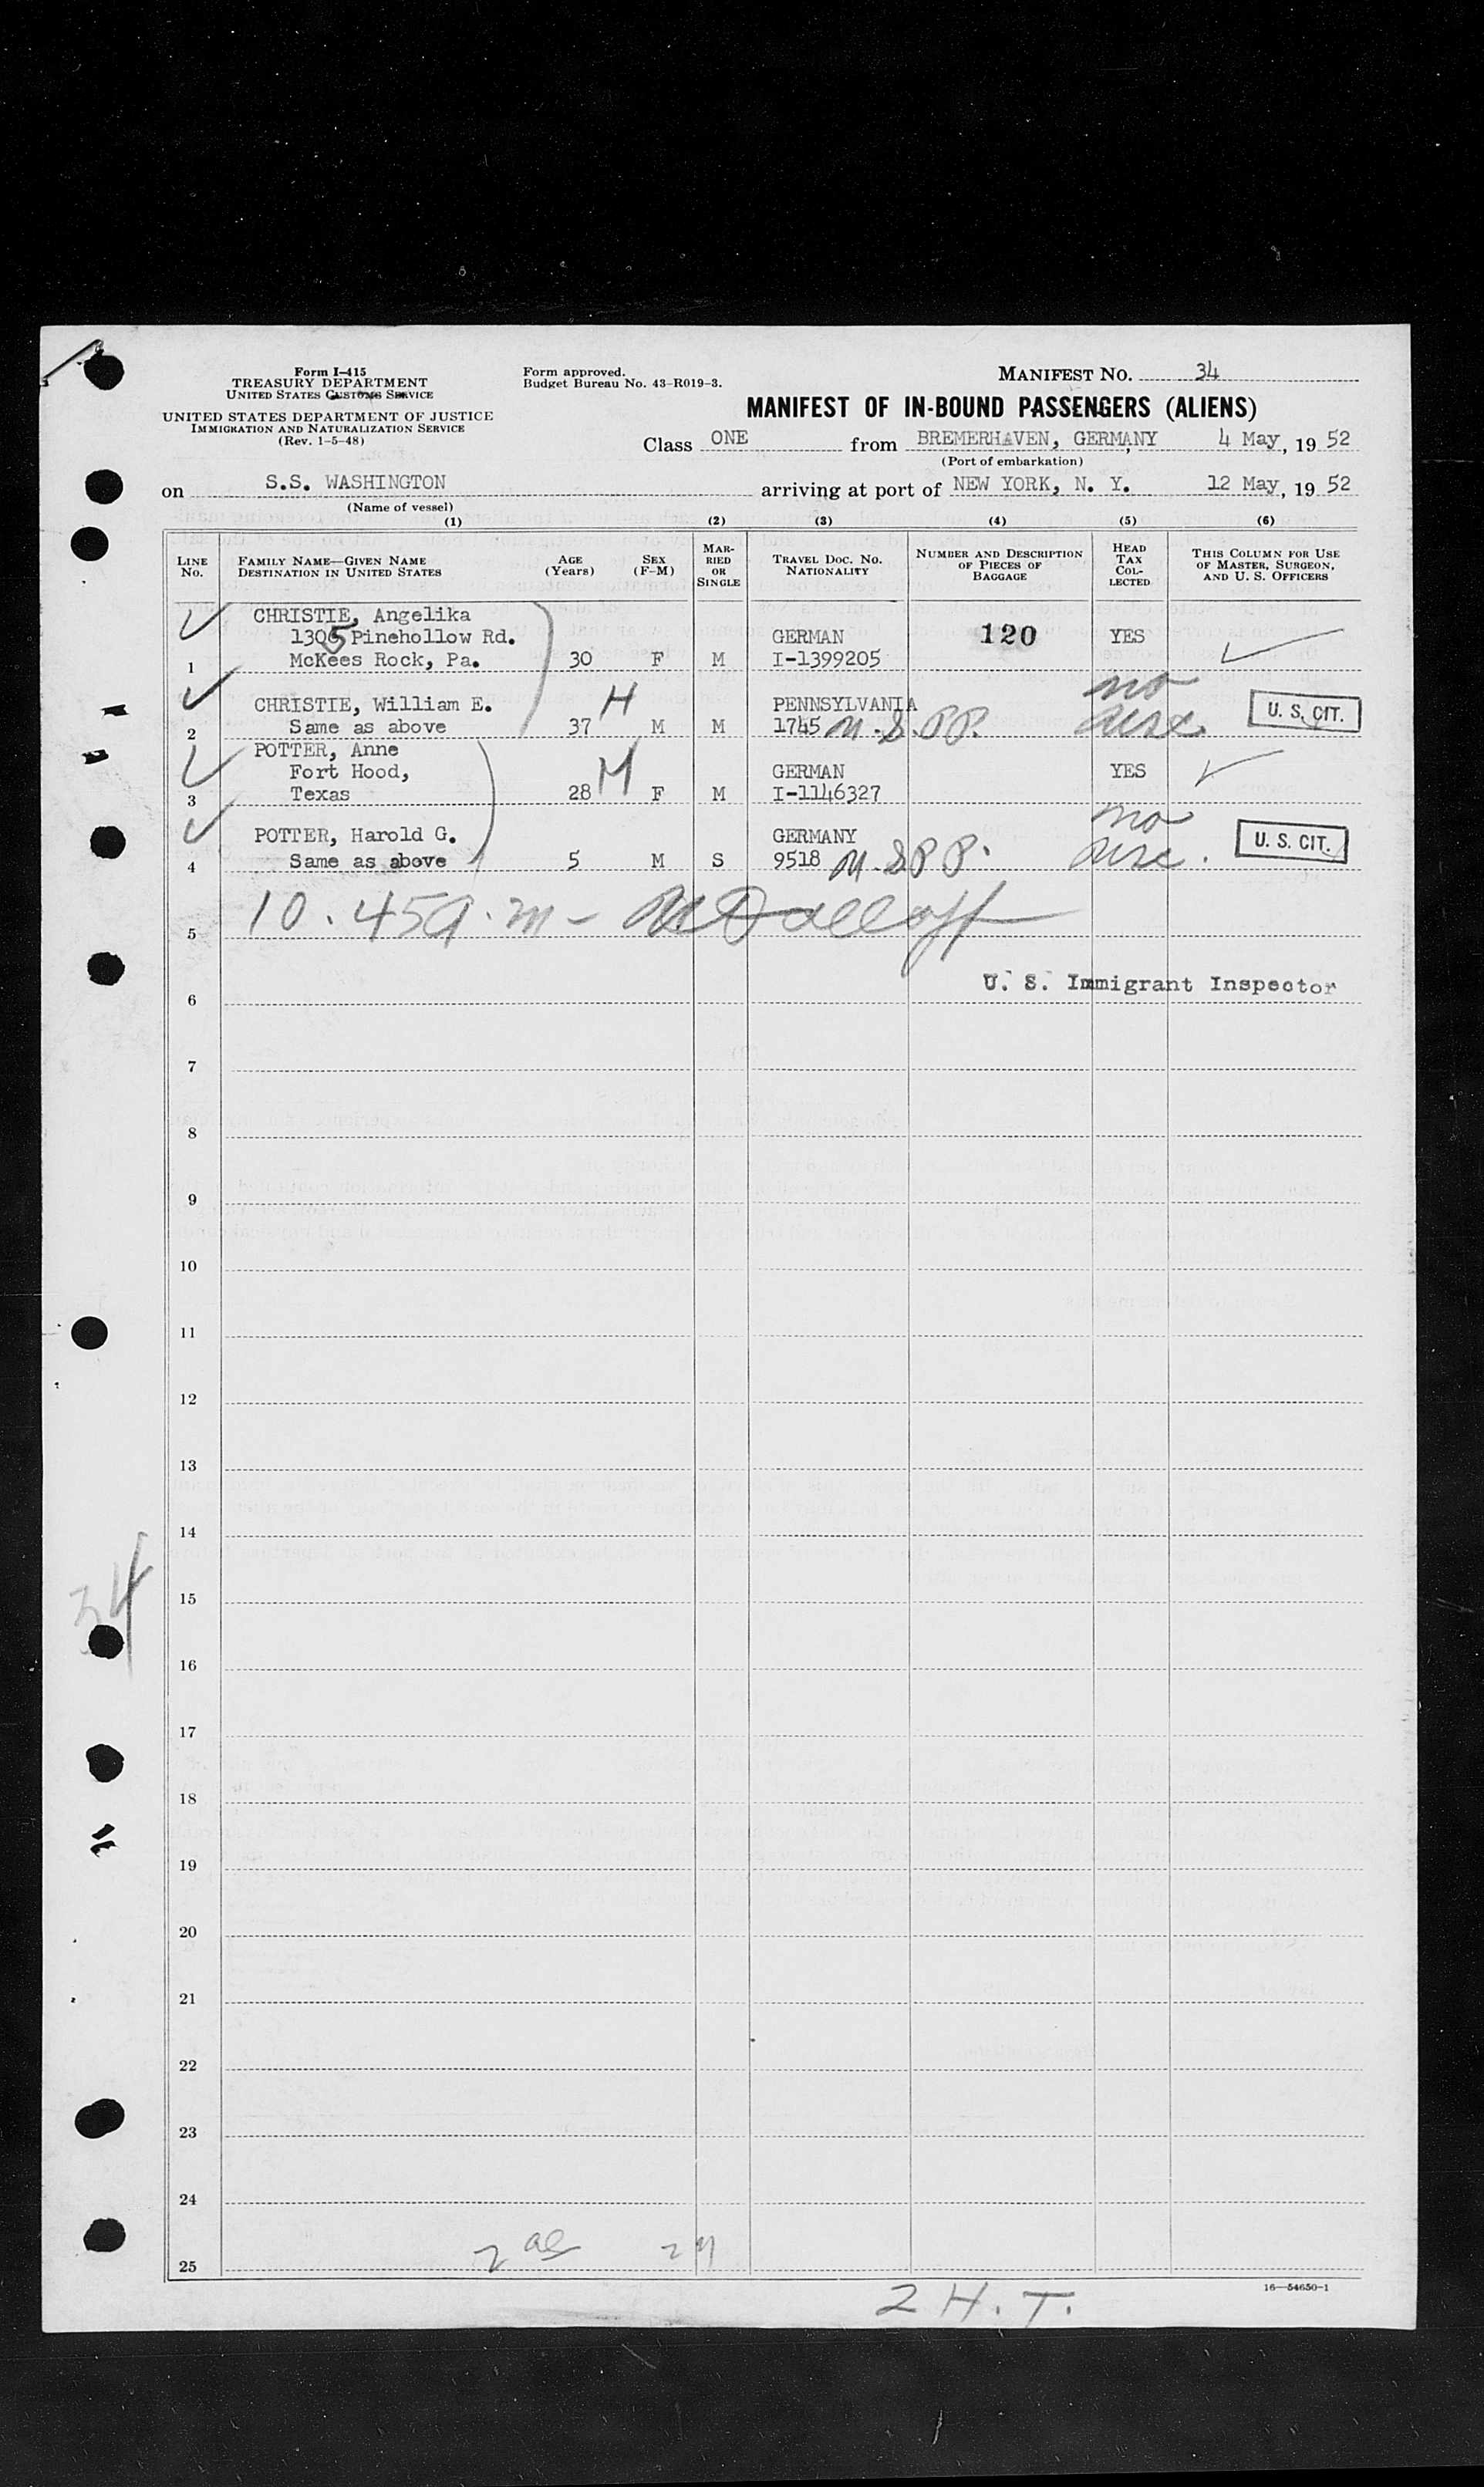 Form I-415
TREASURY DEPARTMENT
UNITED STATES CUSTOMS SERVICE
UNITED STATES DEPARTMENT OF JUSTICE
IMMIGRATION AND NATURALIZATION SERVICE
(Rev. 1-5-48)
Form approved.
Budget Bureau No. 43-R019-3.
MANIFEST NO. 34
MANIFEST OF IN-BOUND PASSENGERS (ALIENS)
Class ONE from BREMERHAVEN, GERMANY, 4 May, 19 52
(Port of embarkation)
on S.S. WASHINGTON arriving at port of NEW YORK, N. Y. 12 May, 19 52
(Name of vessel)
(1) (2) (3) (4) (5) (6)
LINE No. FAMILY NAME—GIVEN NAME DESTINATION IN UNITED STATES AGE (Years) SEX (F-M) MARRIED OR SINGLE TRAVEL DOC. NO. NATIONALITY NUMBER AND DESCRIPTION OF PIECES OF BAGGAGE HEAD TAX COLLECTED THIS COLUMN FOR USE OF MASTER, SURGEON, AND U. S. OFFICERS
CHRISTIE, Angelika
1305 Pinehollow Rd. GERMAN 120 YES
1 McKees Rock, Pa. 30 F M I-1399205
CHRISTIE, William E. H PENNSYLVANIA no U. S. CIT.
2 Same as above 37 M M 1745 U.S.PP.
POTTER, Anne
Fort Hood, M GERMAN YES
3 Texas 28 F M I-1146327
POTTER, Harold G. GERMANY no U. S. CIT.
4 Same as above 5 M S 9518 U.S.PP.
10.45 a.m -
5
U. S. Immigrant Inspector
6
7
8
9
10
11
12
13
14
15
34
16
17
18
19
20
21
22
23
24
25 2
2 H.T.
16—54650-1